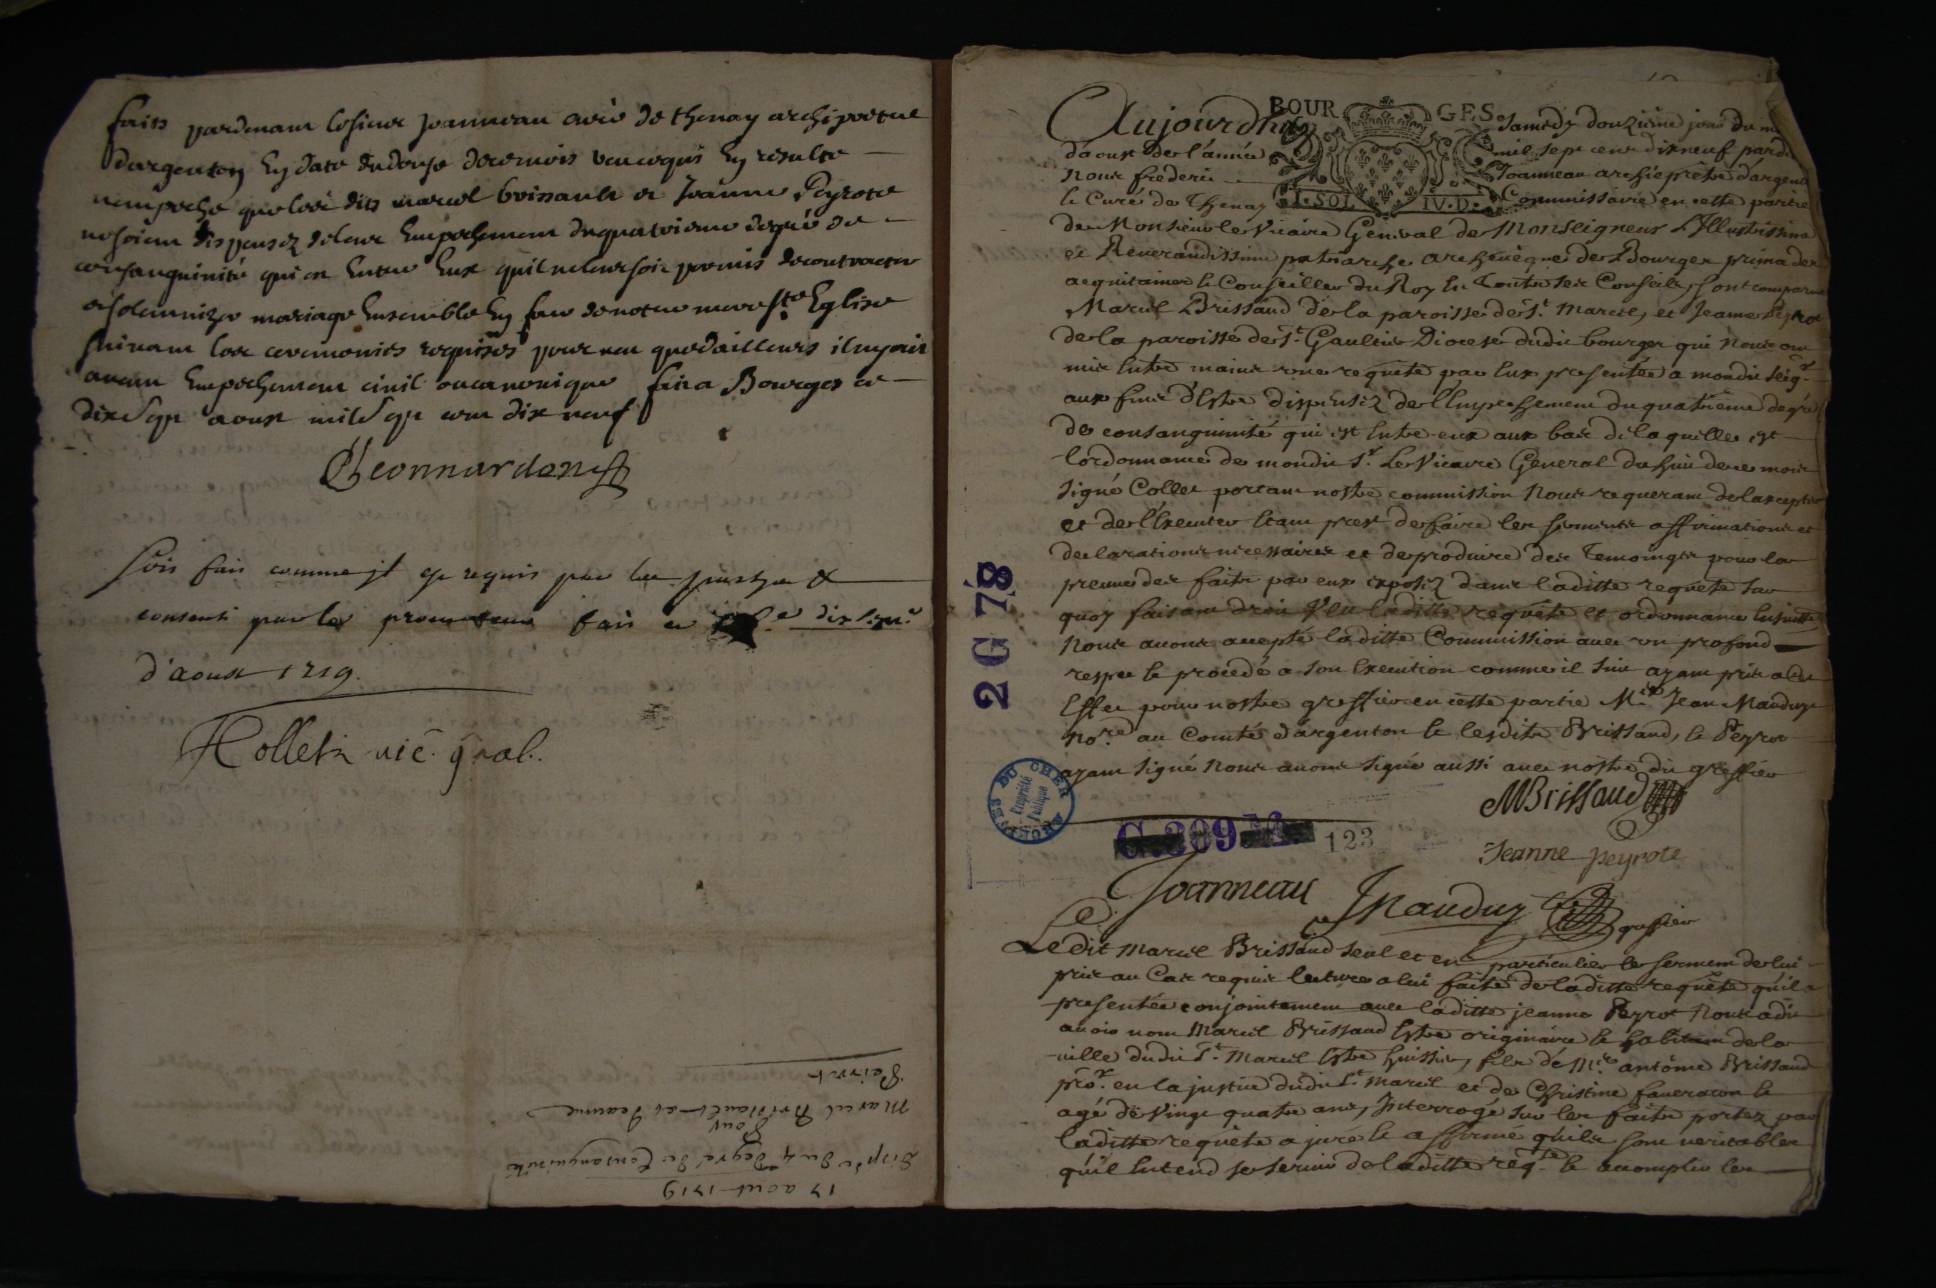 faits pardevant le sieur Joanneau curé de thenay archiprêtre
d'argenton En date du douse de ce mois veu ce qui En résulte
n'empeche que lesd dits marcel brissault et Jeanne Peyrote
ne soient dispensez de leur Empechement du quatrieme degré de
consanguinité qui est Entre Eux qu'il ne leur soit permis de contracter
et solemnizer mariage Ensemble En face de notre mere ste Eglise
suivant les ceremonies requises pourveu que d'ailleurs il n'y ait
aucun Empechement civil ou canonique fait a Bourges ce
dix sept aoust mil sept cent dix neuf
soit fait comme jl est requis par les &
consenti par le promoteur fait ce dix sept
d'aoust 1719.
Collet vic. gnal.
17 aout 1719
Dispe du 4 degré de Consanguinité
Pour
Marcel Brissault et Jeanne
Peirot
BOUR GES
I. SOL IV. D.
Aujourdhuy Samedy douzième jour du
d'aoust de l'année mil sept cent dix neuf par d
Nous frederic Joanneau archiprêtre d'argent
le Curé de Thenay Commissaire en cette partie
de Monsieur le Vicaire General de Monseigneur L'Illustrissime
et Reverandissime patriarche archevêque de Bourges primat des
acquitaines le Conseiller du Roy En Touts ses Conseils, sont comparus
Marcel Brissaud de la paroisse de St. Marcel, et Jeanne Peyrot
de la paroisse de St. Gaultier Diocese dudit bourges qui nous ont
mis Entre mains une requête par Eux presentée a mondit seigr.
aux fins d'Estre dispensez de l'Empeschement du quatrième degré
de consanguinité qui est Entre eux aux bas de laquelle est
l'ordonnance de mondit Sr. Le Vicaire General du huit de ce mois
signé Collet portant nostre commission Nous requerant de l'accepter
et de l'Executer Etant prest de faire les serments affirmations et
declarations necessaires et de produire des Temoings pour la
preuve des faits par eux exposez dans laditte requête sur
quoy faisant droit Veu laditte requête et ordonnance Ensuitte
Nous avons accepté laditte Commission avec un profond
respec le procedé a son Execution comme il suit ayant pris a Cet
Effet pour nostre greffier en cette partie Me Jean Mauduy
Nore au Comté d'argenton le lesdits Brissaud, le Peyrot
ayant signé Nous avons signé aussi avec nostre dit greffier
MBrissaud
Jeanne peyrote
Joanneau JMauduy greffier
2 G 78
ARCHIVES DU CHER
Propriété Publique
C. 309
123
Ledit Marcel Brissaud seul et en particulier le serment de lui
pris au Cas requis lecture a lui faite de laditte requête qu'il a
presentée conjointement avec laditte jeanne Peyrot Nous a dit
avoir nom Marcel Brissaud Estre originaire le habitant de la
ville dudit St. Marcel Estre huissier, fils de Me. antoine Brissaud
pror. en la justice dudit St. Marcel et de Christine faveraon le
agé de vingt quatre ans, Interrogé sur les faits portez par
laditte requête a juré le affirmé qu'ils sont veritables
qu'il Entend se servir de laditte reqte. le accomplir les